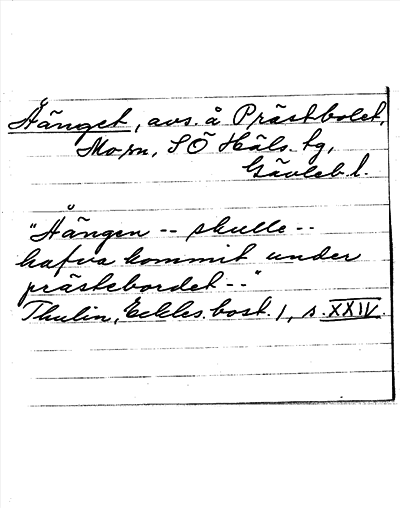 Åänget, avs. å Prästbolet,
Mo sn, SÖ Häls. tg,
Gävleb. l.
"Åängen -- skulle --
hafva kommit under
prästebordet --"
Thulin, Eckles. bost. 1, s. XXIV.